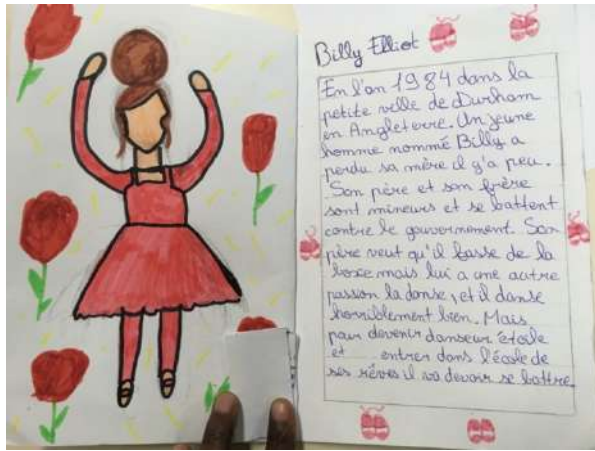 Billy Elliot
En l'an 1984 dans la
petite ville de Durham
en Angleterre. Un jeune
homme nommé Billy a
perdu sa mère il y'a peu.
Son père et son frère
sont mineurs et se battent
contre le gouvernement. Son
père veut qu'il fasse de la
boxe mais lui a une autre
passion la danse, et il danse
horriblement bien. Mais
pour devenir danseur étoile
et entrer dans l'école de
ses rêves il va devoir se battre.